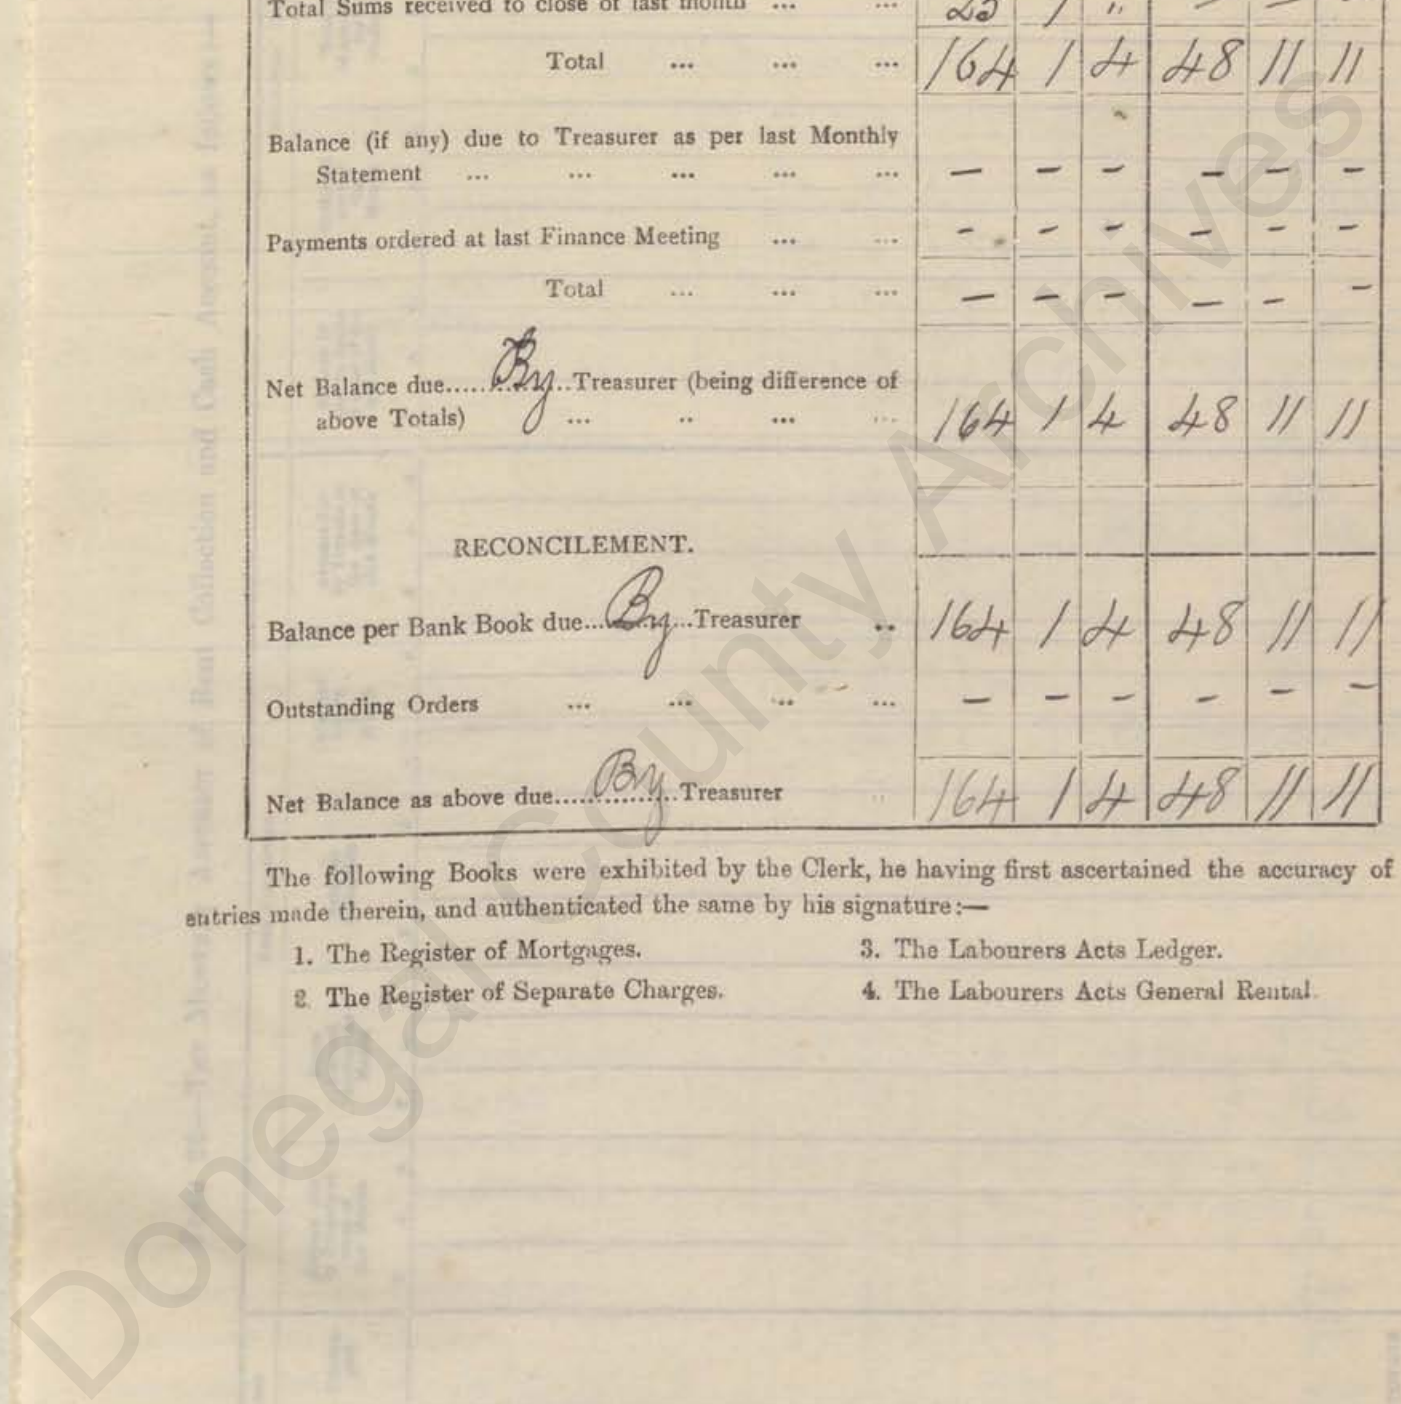 Total Sums received to close of last month ... ... 25 1 " — — -
Total ... ... ... 164 1 4 48 11 11
Balance (if any) due to Treasurer as per last Monthly
Statement ... ... ... ... ... — — — — — —
Payments ordered at last Finance Meeting ... ... - - - - - -
Total ... ... ... — - - — - -
Net Balance due.....By..Treasurer (being difference of
above Totals) ... .. ... ... 164 1 4 48 11 11
RECONCILEMENT.
Balance per Bank Book due...By...Treasurer .. 164 1 4 48 11 11
Outstanding Orders ... ... ... ... - - - - - -
Net Balance as above due.....By..Treasurer .. 164 1 4 48 11 11
The following Books were exhibited by the Clerk, he having first ascertained the accuracy of
entries made therein, and authenticated the same by his signature:—
1. The Register of Mortgages. 3. The Labourers Acts Ledger.
2. The Register of Separate Charges. 4. The Labourers Acts General Rental.
Donegal County Archives